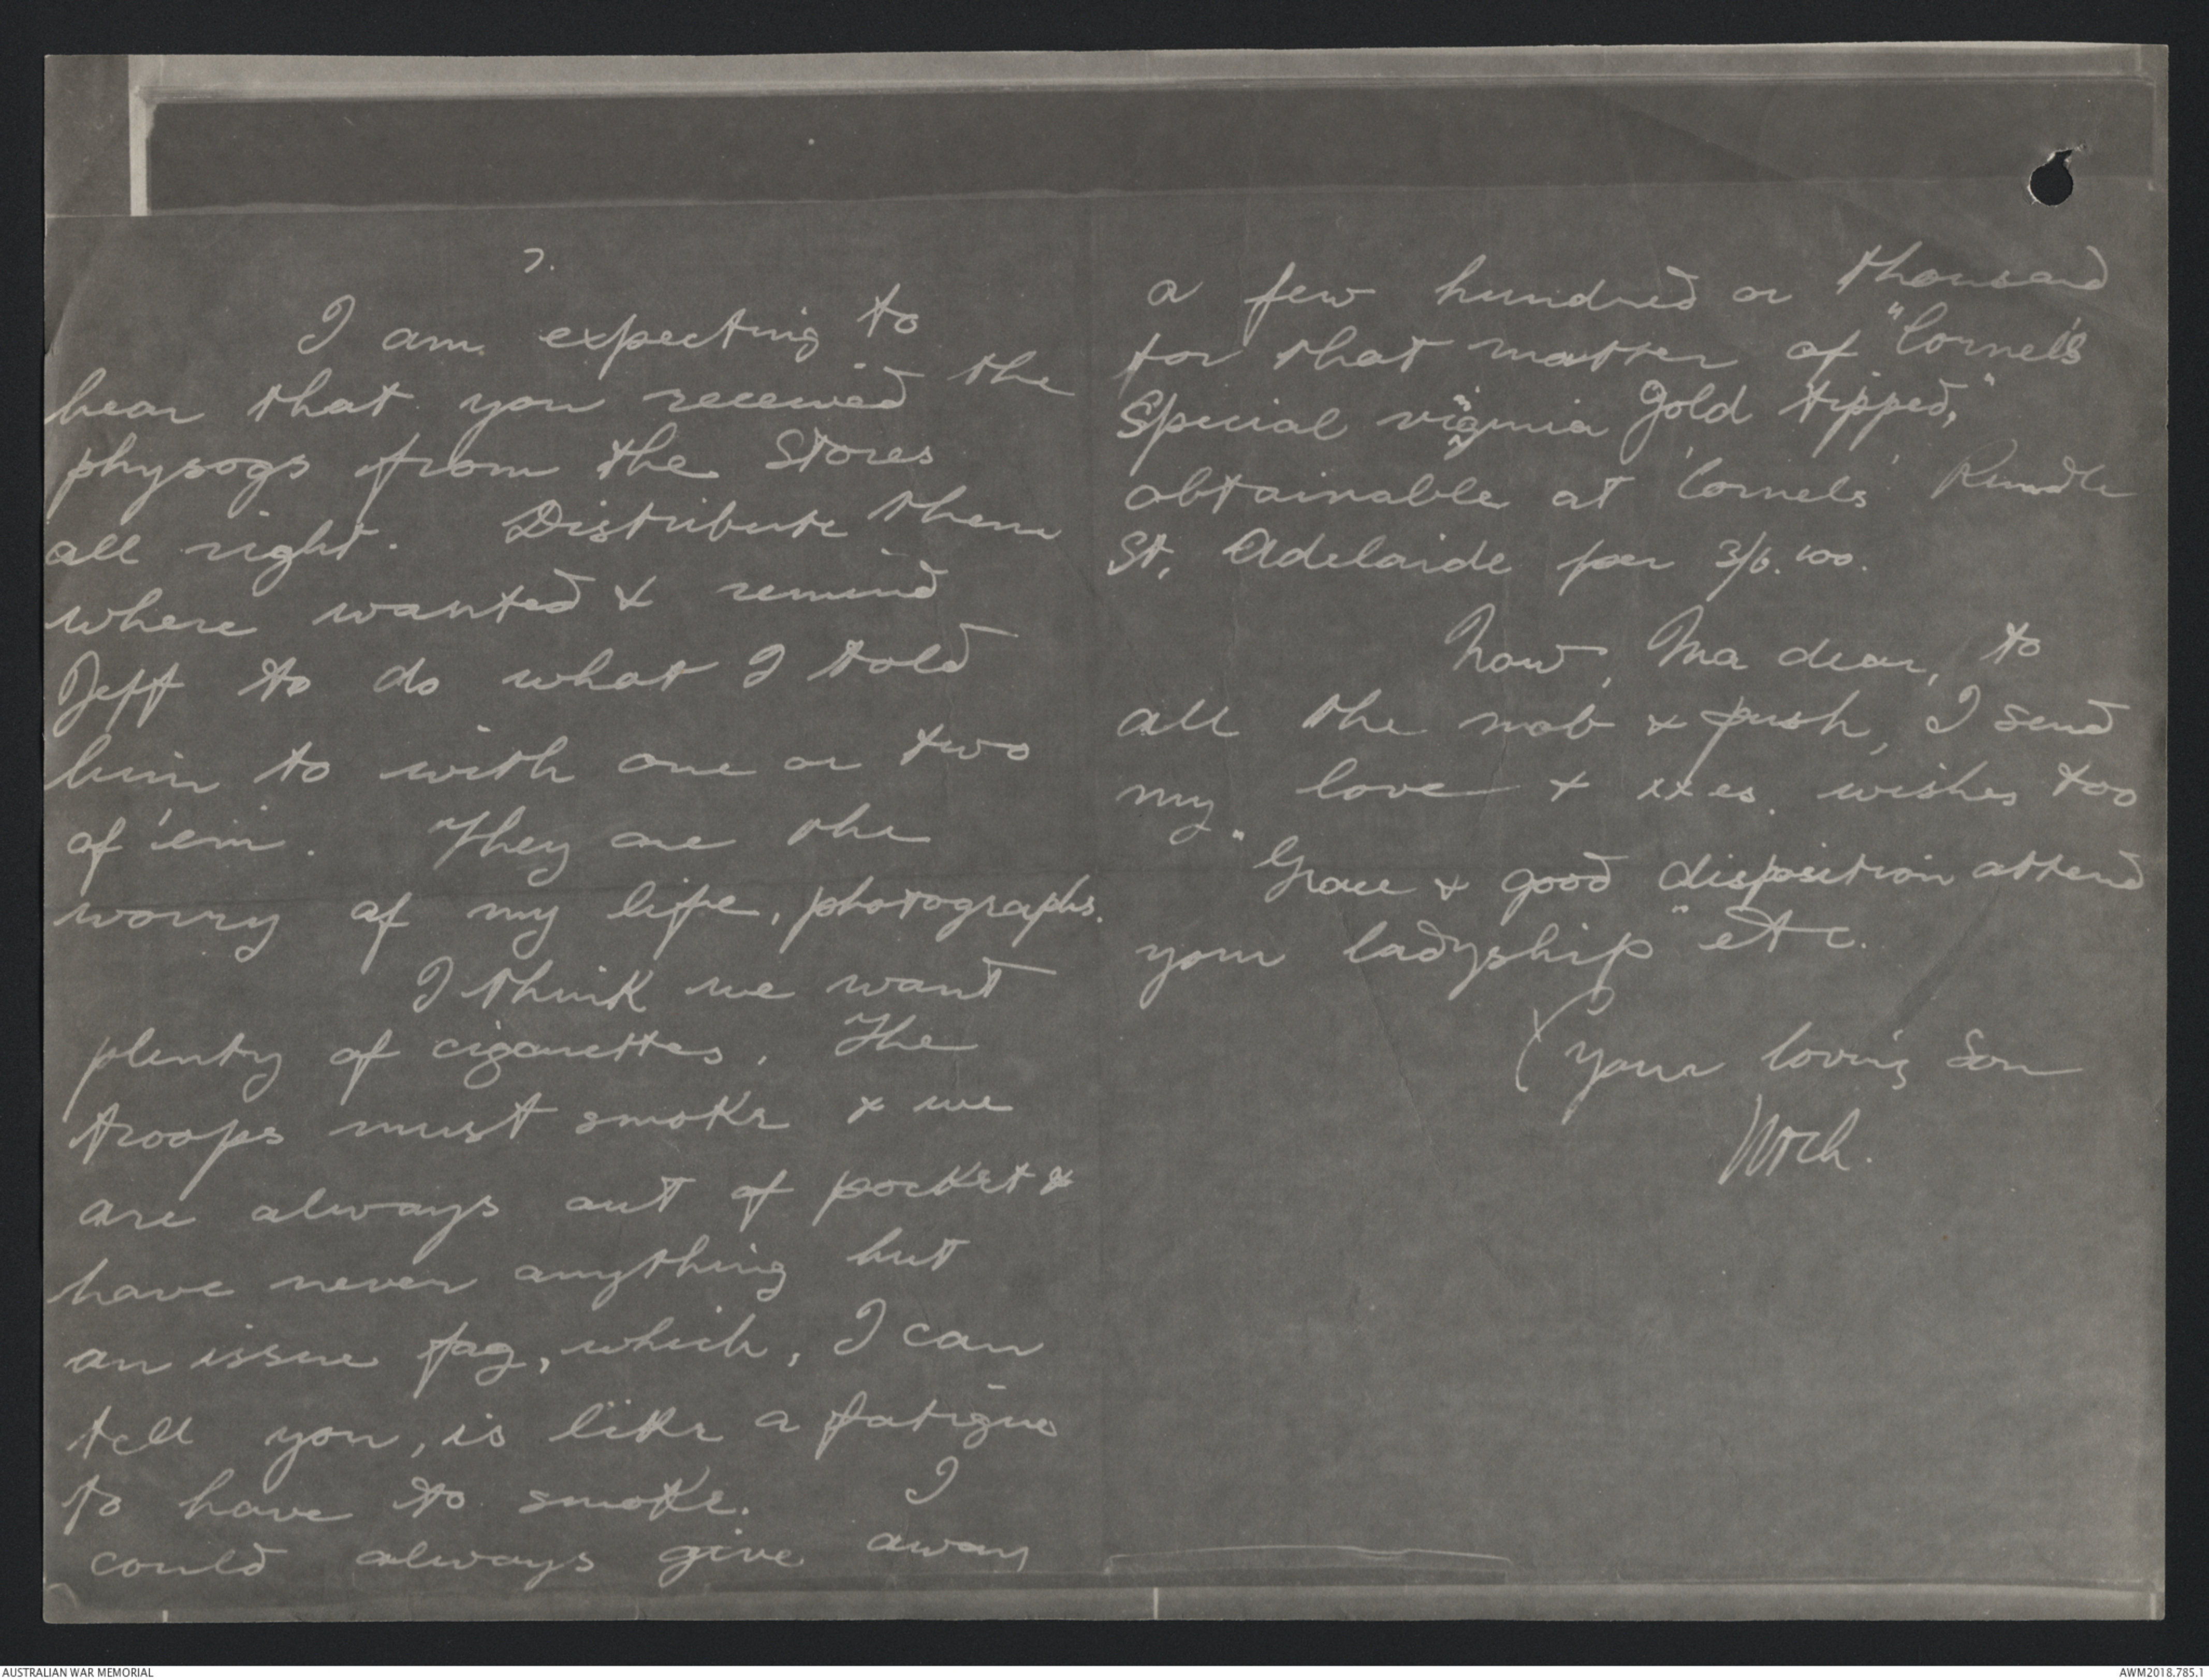 7.
I am expecting to
hear that you received the
physogs from the Stores
all right. Distribute them
where wanted & remind
Jeff to do what I told
him to with one or two
of 'em. They are the
worry of my life, photographs.
I think we want
plenty of cigarettes. The
troops must smoke & we
are always out of pocket &
have never anything but
an issue fag, which, I can
tell you, is like a fatigue
to have to smoke. I
could always give away
a few hundred or thousand
for that matter of "Cornel's
Special virginia Gold tipped,"
obtainable at 'Cornels' Rundle
St, Adelaide per 3/6. 100.
Now, Ma dear, to
all the mob & push, I send
my love & xxes. wishes too
"Grace & good disposition attend
your ladyship" etc.
Your loving Son
AUSTRALIAN WAR MEMORIAL
AWM2018.785.1